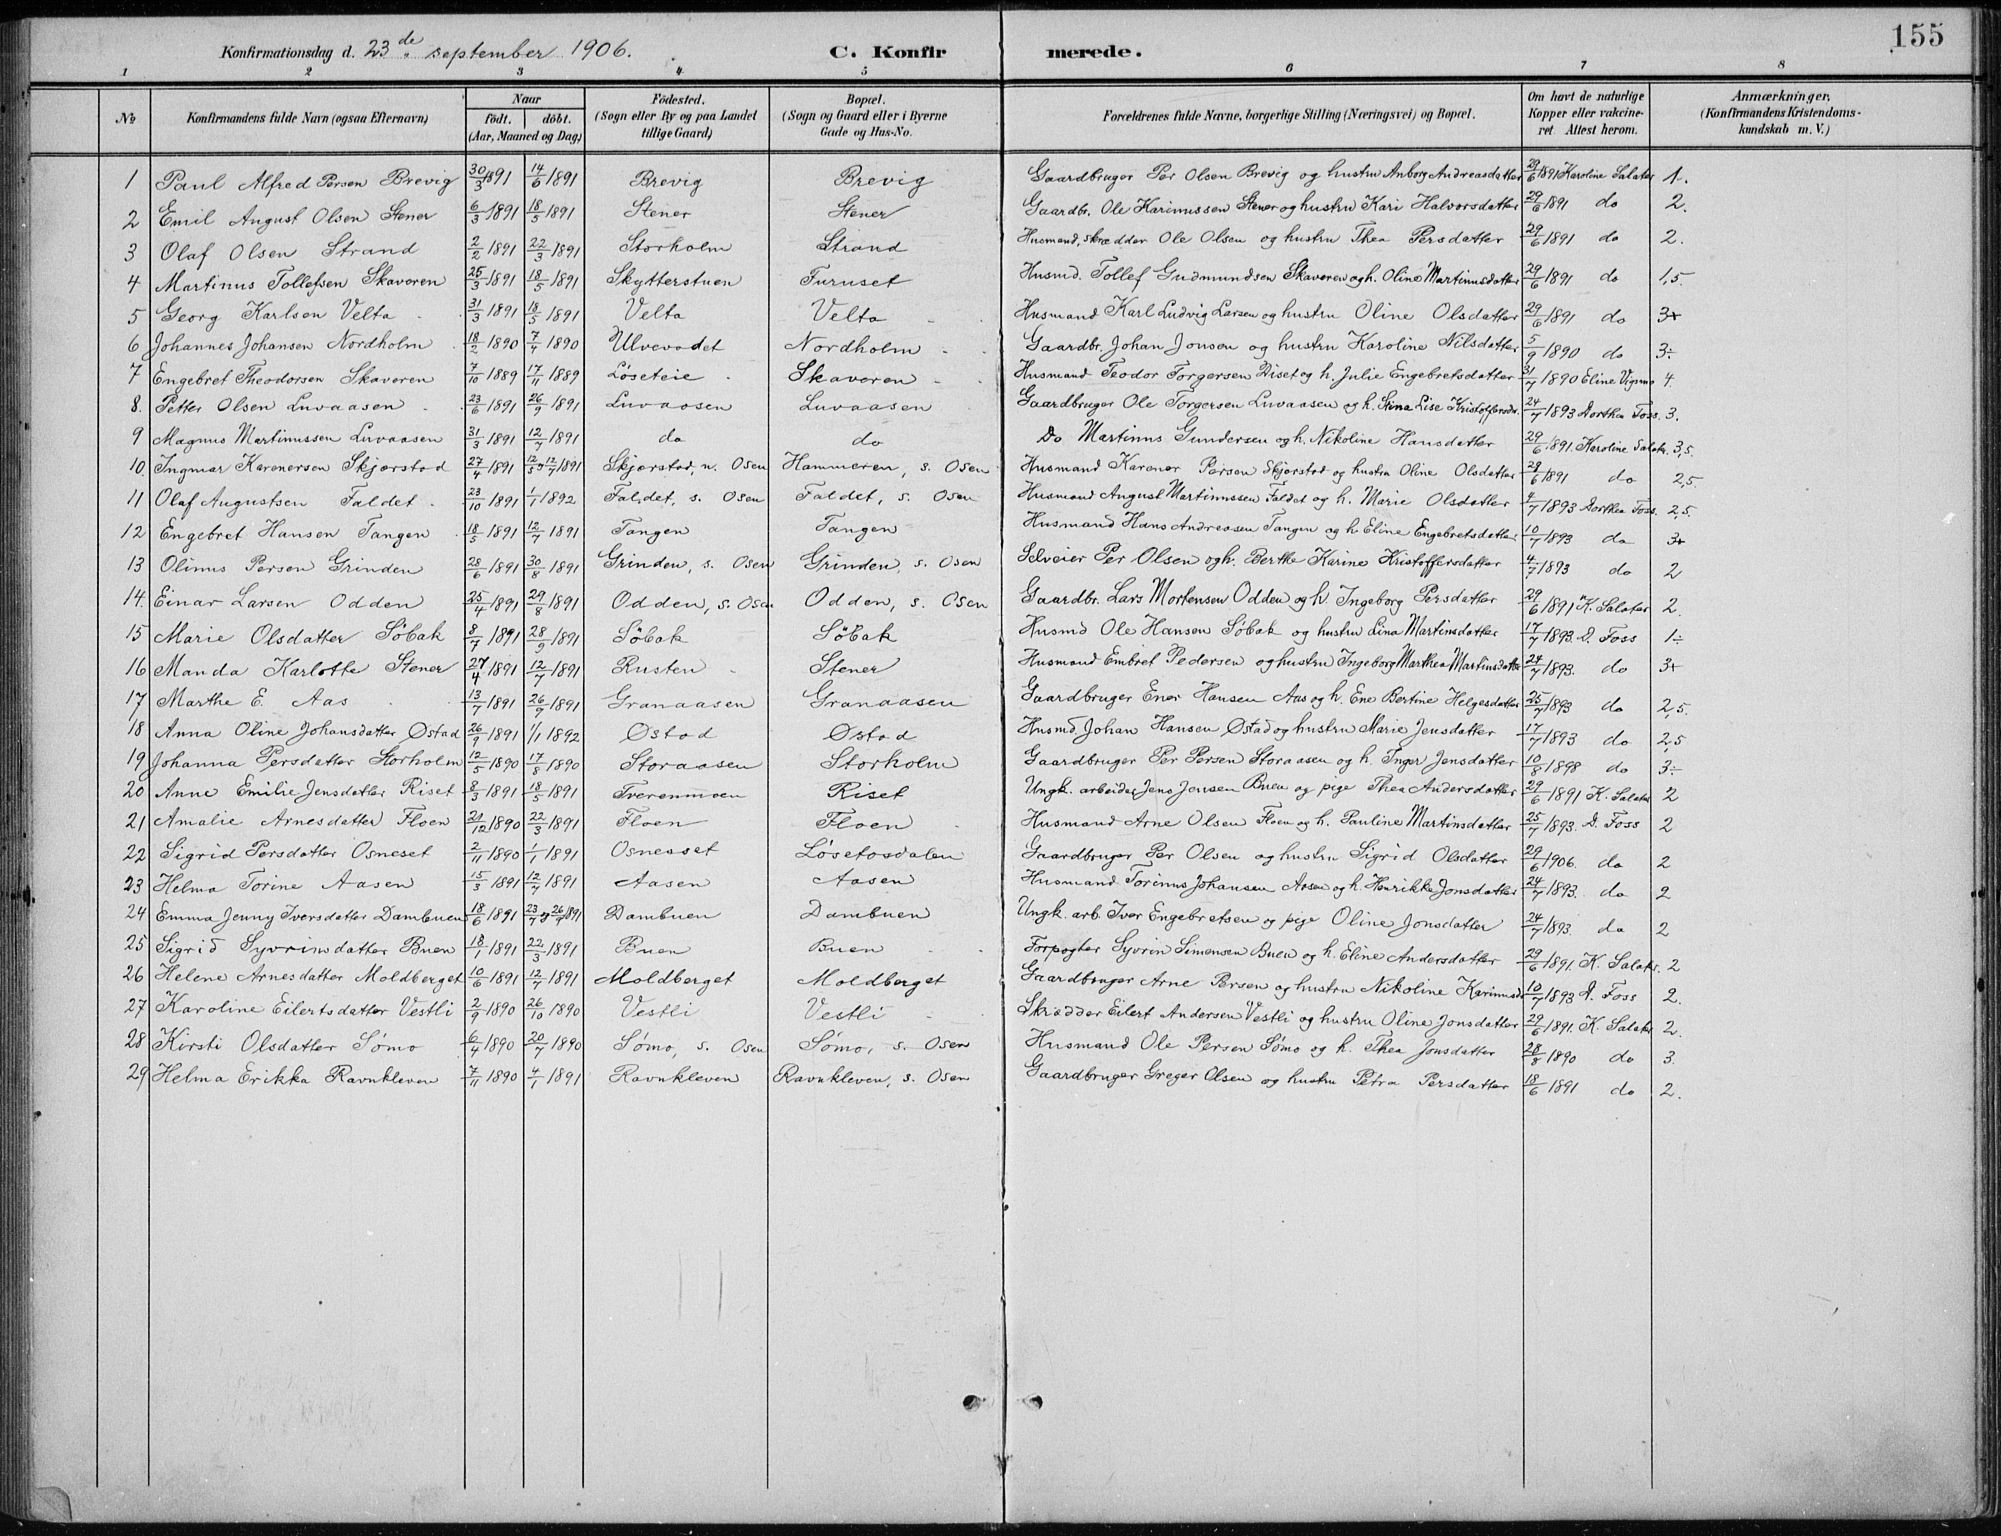 155
Konfirmationsdag d. 23de september 1906. C. Konfirmerede.
1 2 3 4 5 6 7 8
No Konfirmandens fulde Navn (ogsaa Efternavn) Naar födt. döbt. (Aar, Maaned og Dag) Födested. (Sogn eller By og paa Landet tillige Gaard) Bopæl. (Sogn og Gaard eller i Byerne Gade og Hus-No. Forældrenes fulde Navne, borgerlige Stilling (Næringsvei) og Bopæl. Om havt de naturlige Kopper eller vakcineret. Attest herom. Anmærkninger, (Konfirmandens Kristendomskundskab m. V.)
1 Paul Alfred Persen Brevig 30/3 1891 14/6 1891 Brevig Brevig Gaardbruger Per Olsen Brevig og hustru Anborg Andreasdatter 29/6 1891 Karoline Salater 1.
2 Emil August Olsen Stener 6/3 1891 18/5 1891 Stener Stener Gaardbr. Ole Karinussen Stener og hustru Kari Halvorsdatter 29/6 1891 do 2.
3 Olaf Olsen Strand 2/2 1891 22/3 1891 Storholm Strand Husmand, skrædder Ole Olsen og hustru Thea Persdatter 29/6 1891 do 2.
4 Martinus Tollefsen Skaveren 25/3 1891 18/5 1891 Skytterstuen Furuset Husmd. Tollef Gudmundsen Skaveren og h. Oline Martinusdatter 29/6 1891 do 1,5.
5 Georg Karlsen Velta 31/3 1891 18/5 1891 Velta Velta Husmand Karl Ludvig Larsen og hustru Oline Olsdatter 29/6 1891 do 3+
6 Johannes Johansen Nordholm 18/2 1890 7/4 1890 Ulvevadet Nordholm Gaardbr. Johan Jonsen og hustru Karoline Nilsdatter 5/9 1890 do 3÷
7 Engebret Theodorsen Skaveren 7/10 1889 17/11 1889 Löseteie Skaveren Husmand Teodor Torgersen Diset og h. Julie Engebretsdatter 31/7 1890 Eline Vigmo 4.
8. Petter Olsen Luvaasen 23/6 1891 26/9 1891 Luvaasen Luvaasen Gaardbruger Ole Torgersen Luvaasen og h. Stina Lise Kristoffersdr. 24/7 1893 Dorthea Foss. 3.
9 Magnus Martinussen Luvaasen 31/3 1891 12/7 1891 do do Do Martinus Gundersen og h. Nikoline Hansdatter 29/6 1891. Karoline Salatr. 3,5.
10. Ingmar Karenersen Skjærstad 27/4 1891 12/5 12/7 1891 Skjærstad, n. Osen Hammeren, s. Osen Husmand Karener Persen Skjærstad og hustru Oline Olsdatter 29/6 1891 do 2,5.
11 Olaf Augustsen Faldet 23/10 1891 1/1 1892 Faldet, s. Osen Faldet, s. Osen Husmand August Martinussen Faldet og h. Marie Olsdatter 4/7 1893 Dorthea Foss. 2,5.
12 Engebret Hansen Tangen 18/5 1891 12/7 1891 Tangen Tangen Husmand Hans Andreasen Tangen og h. Eline Engebretsdatter 10/7 1893 do 3+
13 Olinus Persen Grinden 28/6 1891 30/8 1891 Grinden, s. Osen Grinden, s. Osen Selveier Per Olsen og h. Berthe Karine Kristoffersdatter 4/7 1893 do 2
14. Einar Larsen Odden 25/4 1891 29/8 1891 Odden, s. Osen Odden, s. Osen Gaardbr. Lars Mortensen Odden og h. Ingeborg Persdatter 29/6 1891 K. Salater 2.
15 Marie Olsdatter Söbak 8/7 1891 28/9 1891 Söbak Söbak Husmd Ole Hansen Söbak og hustru Lina Martinsdatter 17/7 1893. D. Foss 1÷
16 Manda Karlotte Stener 27/4 1891 12/7 1891 Rusten Stener Husmand Embret Pedersen og hustru Ingeborg Marthea Martinsdatter 24/7 1893. do 3+
17 Marthe E. Aas 13/7 1891 26/9 1891 Granaasen Granaasen Gaardbruger Ener Hansen Aas og h. Ene Bertine Helgesdatter 25/7 1893 do 2,5.
18 Anna Oline Johansdatter Østad 26/9 1891 1/1 1892 Østad Østad Husmd. Johan Hansen Østad og hustru Marie Jensdatter 17/7 1893 do 2,5
19 Johanna Persdatter Storholm 12/5 1890 17/8 1890 Storaasen Storholm Gaardbruger Per Persen Storaasen og h. Inger Jensdatter 10/8 1898 do 3÷
20 Anne Emilie Jensdatter Riset 8/3 1891 18/5 1891 Tverenmoen Riset Ungk. arbeider Jens Jensen Buen og pige Thea Andersdatter 29/6 1891 K. Salater 2
21 Amalie Arnesdatter Floen 21/12 1890 22/3 1891 Floen Floen Husmand Arne Olsen Floen og h. Pauline Martinsdatter 25/7 1893. D. Foss 2
22 Sigrid Persdatter Osneset 2/11 1890 1/1 1891 Osnesset Løsetosdalen Gaardbruger Per Olsen og hustru Sigrid Olsdatter 29/6 1906. do 2
23 Helma Torine Aasen 15/3 1891 12/4 1891 Aasen Aasen Husmand Torinus Johansen Aasen og h. Henrikke Jonsdatter 24/7 1893. do 2
24 Emma Jenny Iversdatter Dambuen 18/6 1891 23/7 26/7 1891 Dambuen Dambuen Ungk. arb. Iver Engebretsen og pige Oline Jonsdatter 24/7 1893. do 2
25 Sigrid Syvrinsdatter Buen 18/1 1891 22/3 1891 Buen Buen Forpagter Syvrin Simensen Buen og h. Eline Andersdatter 29/6 1891. K. Salatr. 2
26 Helene Arnesdatter Moldberget 10/6 1891 12/7 1891 Moldberget Moldberget Gaardbruger Arne Persen og hustru Nikoline Karinusd. 10/7 1893 D. Foss 2.
27 Karoline Eilertsdatter Vestli 2/9 1890 26/10 1890 Vestli Vestli Skrædder Eilert Andersen Vestli og hustru Oline Jonsdatter 29/6 1891. K. Salater 2.
28 Kirsti Olsdatter Sømo 6/4 1890 20/7 1890 Sømo, s. Osen Sømo, s. Osen Husmand Ole Persen Sømo og h. Thea Jonsdatter 28/8 1890 do 3.
29 Helma Erikka Ravnkleven 7/11 1890 4/1 1891 Ravnkleven Ravnkleven, s. Osen Gaardbruger Greger Olsen og hustru Petra Persdatter 18/6 1891 do 2.